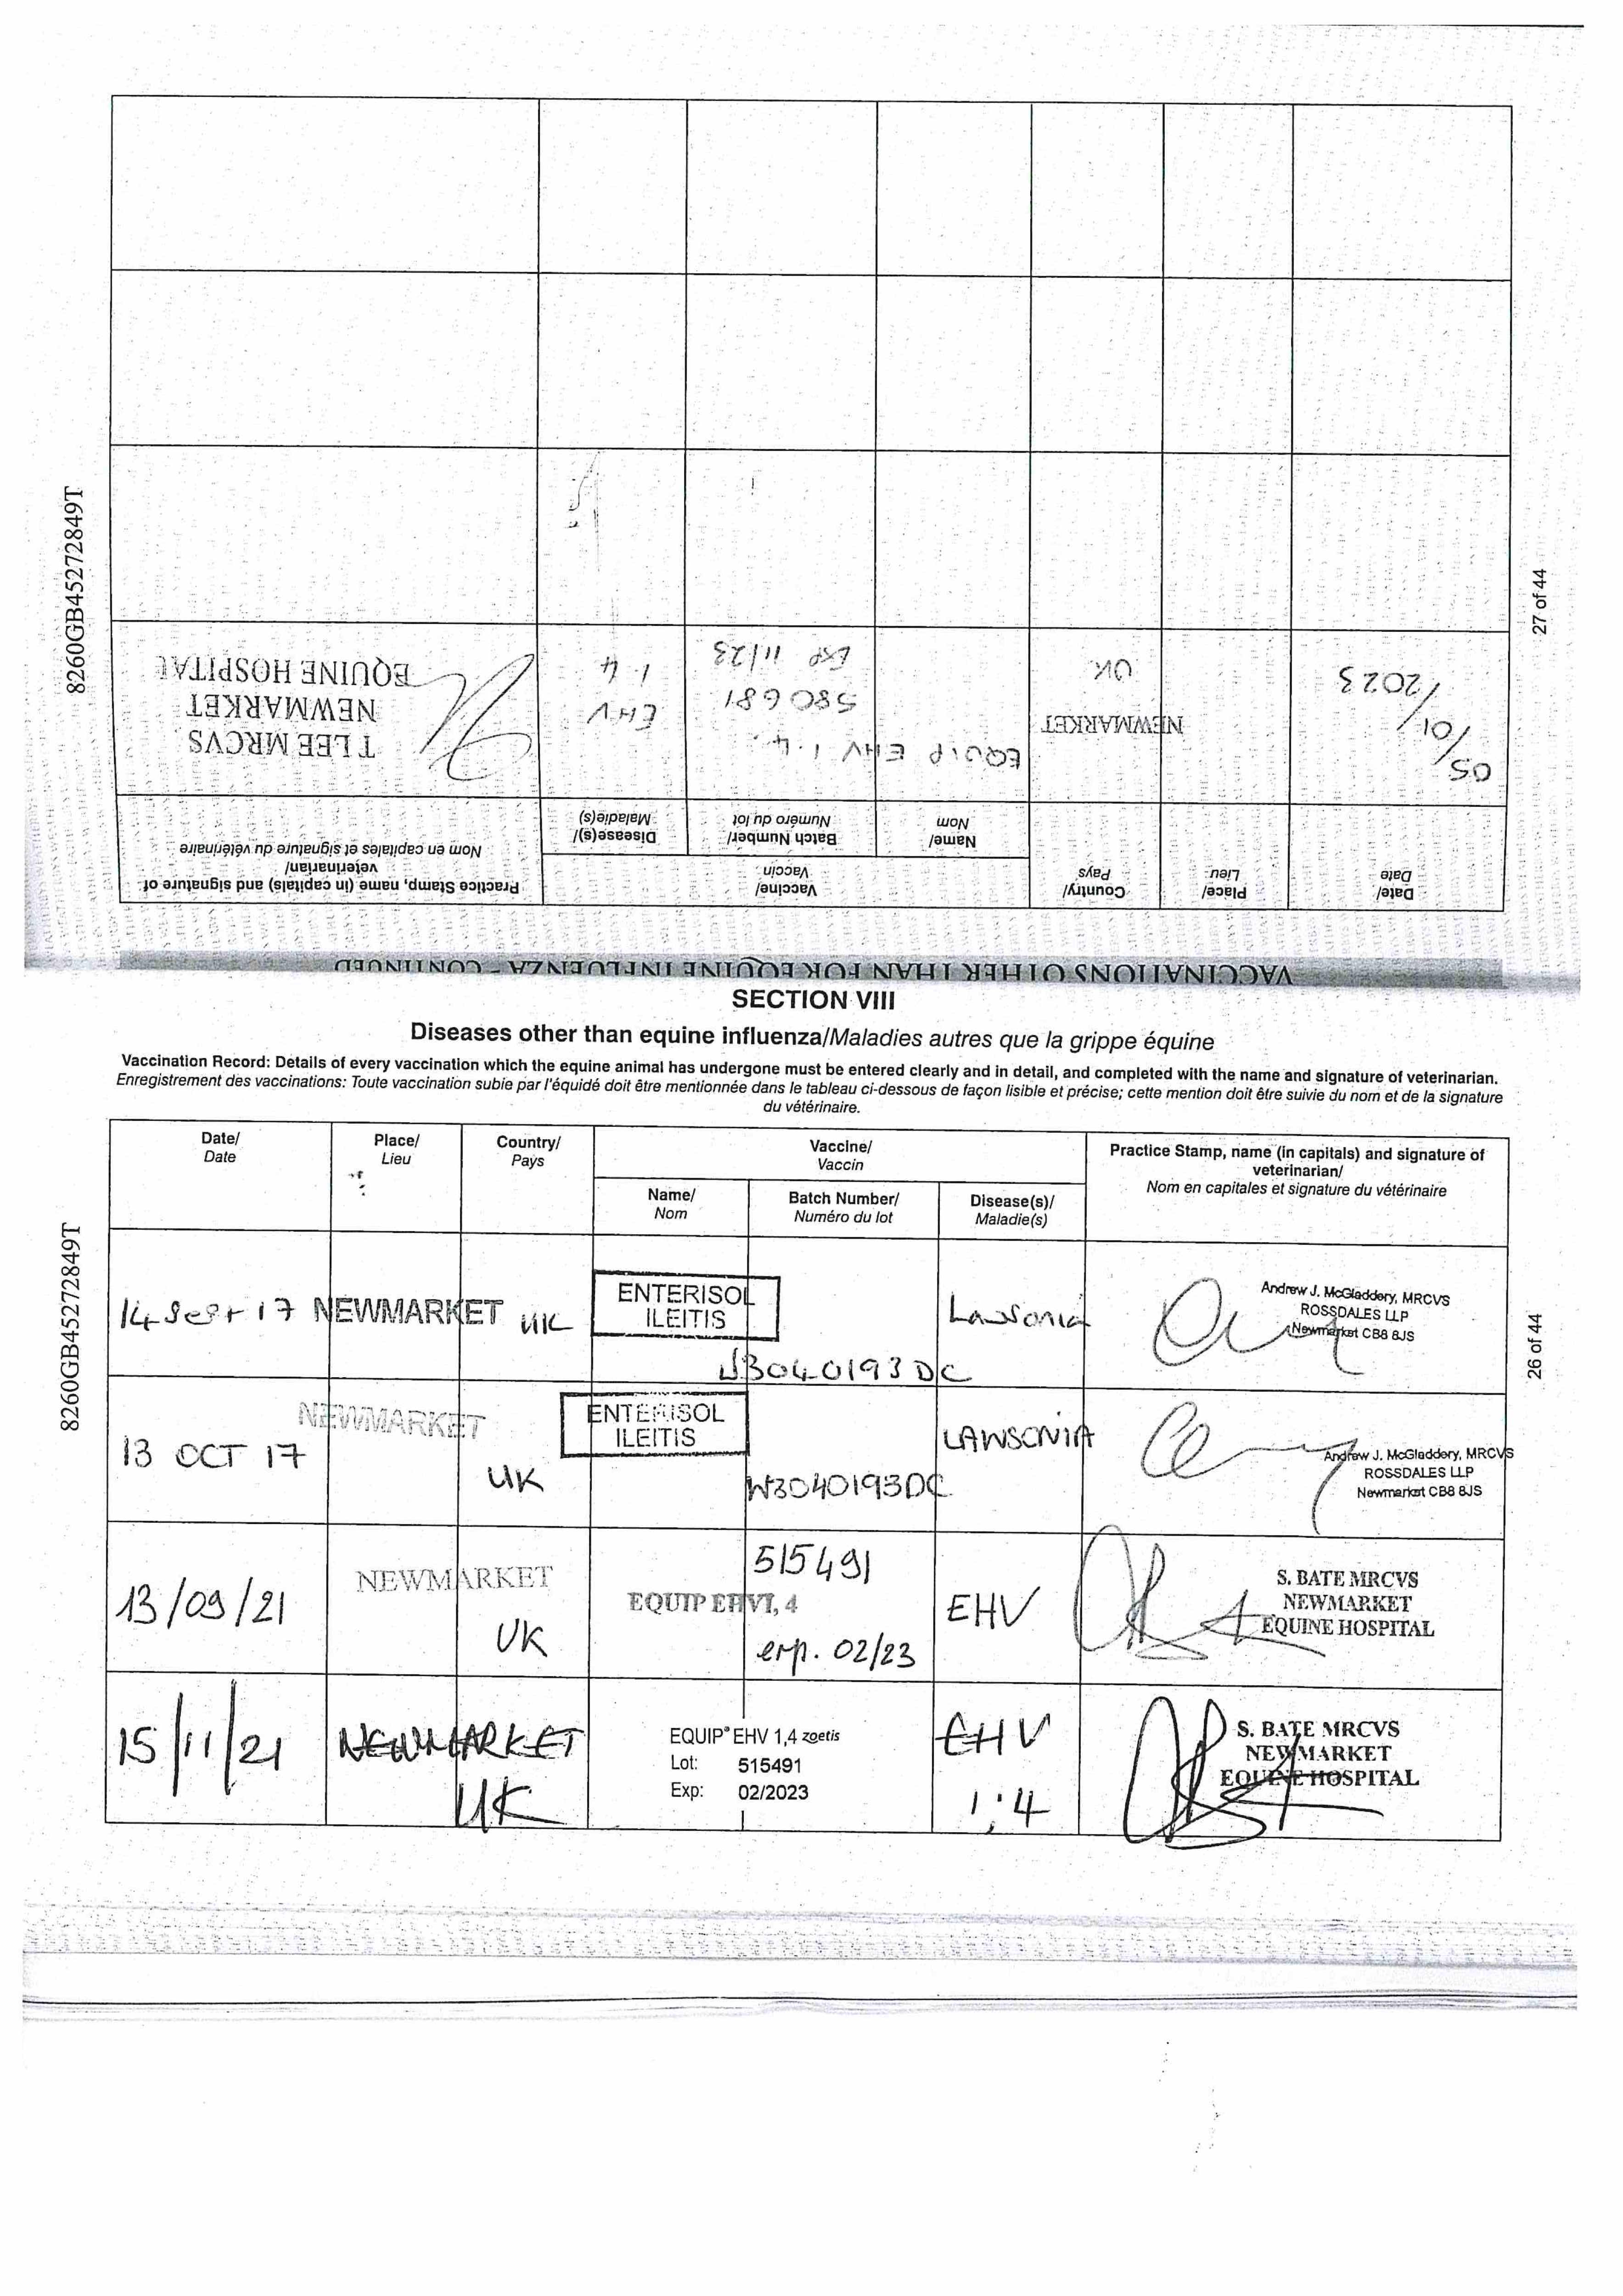 8260GB45272849T
27 of 44
VACCINATIONS OTHER THAN FOR EQUINE INFLUENZA - CONTINUED
Date/
Date
Place/
Lieu
Country/
Pays
Vaccine/
Vaccin
Name/
Nom
Batch Number/
Numéro du lot
Disease(s)/
Maladie(s)
Practice Stamp, name (in capitals) and signature of
veterinarian/
Nom en capitales et signature du vétérinaire
05/01/2023
NEWMARKET
UK
EQUIP EHV 1.4.
580681
EXP 11/23
EHV
1.4
T LEE MRCVS
NEWMARKET
EQUINE HOSPITAL
SECTION VIII
Diseases other than equine influenza/Maladies autres que la grippe équine
Vaccination Record: Details of every vaccination which the equine animal has undergone must be entered clearly and in detail, and completed with the name and signature of veterinarian.
Enregistrement des vaccinations: Toute vaccination subie par l'équidé doit être mentionnée dans le tableau ci-dessous de façon lisible et précise; cette mention doit être suivie du nom et de la signature
du vétérinaire.
8260GB45272849T
26 of 44
Date/
Date
Place/
Lieu
Country/
Pays
Vaccine/
Vaccin
Name/
Nom
Batch Number/
Numéro du lot
Disease(s)/
Maladie(s)
Practice Stamp, name (in capitals) and signature of
veterinarian/
Nom en capitales et signature du vétérinaire
14 Sept 17
NEWMARKET
UK
ENTERISOL
ILEITIS
W3040193DC
Lawsonia
Andrew J. McGladdery, MRCVS
ROSSDALES LLP
Newmarket CB8 8JS
13 OCT 17
NEWMARKET
UK
ENTERISOL
ILEITIS
W3040193DC
LAWSONIA
Andrew J. McGladdery, MRCVS
ROSSDALES LLP
Newmarket CB8 8JS
13/09/21
NEWMARKET
UK
EQUIP EHV1, 4
515491
exp. 02/23
EHV
S. BATE MRCVS
NEWMARKET
EQUINE HOSPITAL
15/11/21
NEWMARKET
UK
EQUIP® EHV 1,4 zoetis
Lot: 515491
Exp: 02/2023
EHV
1:4
S. BATE MRCVS
NEWMARKET
EQUINE HOSPITAL